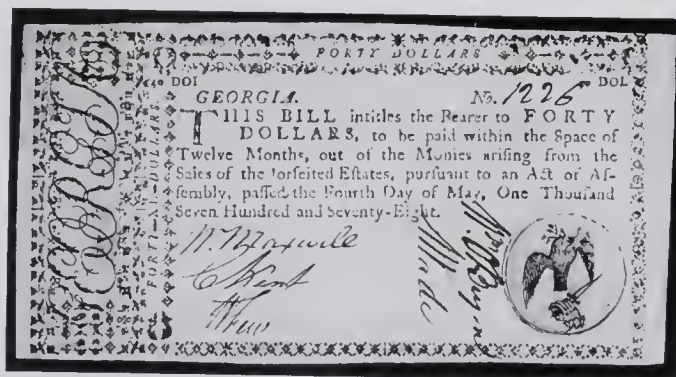 FORTY DOLLARS
DOL DOL
GEORGIA. No. 1226
THIS BILL intitles the Bearer to FORTY
DOLLARS, to be paid within the Space of
Twelve Months, out of the Monies arising from the
Sales of the forfeited Eſtates, purſuant to an Act of Aſ-
ſembly, paſſed the Fourth Day of May, One Thouſand
Seven Hundred and Seventy-Eight.
Wm Maxwell
C Kent
Wade
GEORGIA
FORTY DOLLARS